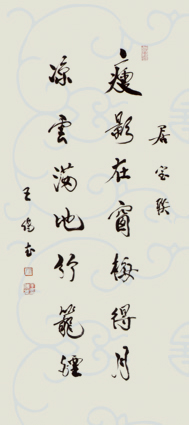 居室联
瘦影在窗梅得月
凉云满地竹笼烟